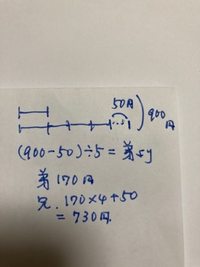 50円
900円
(900-50)÷5=弟sy
弟170円
兄.170×4+50
=730円.